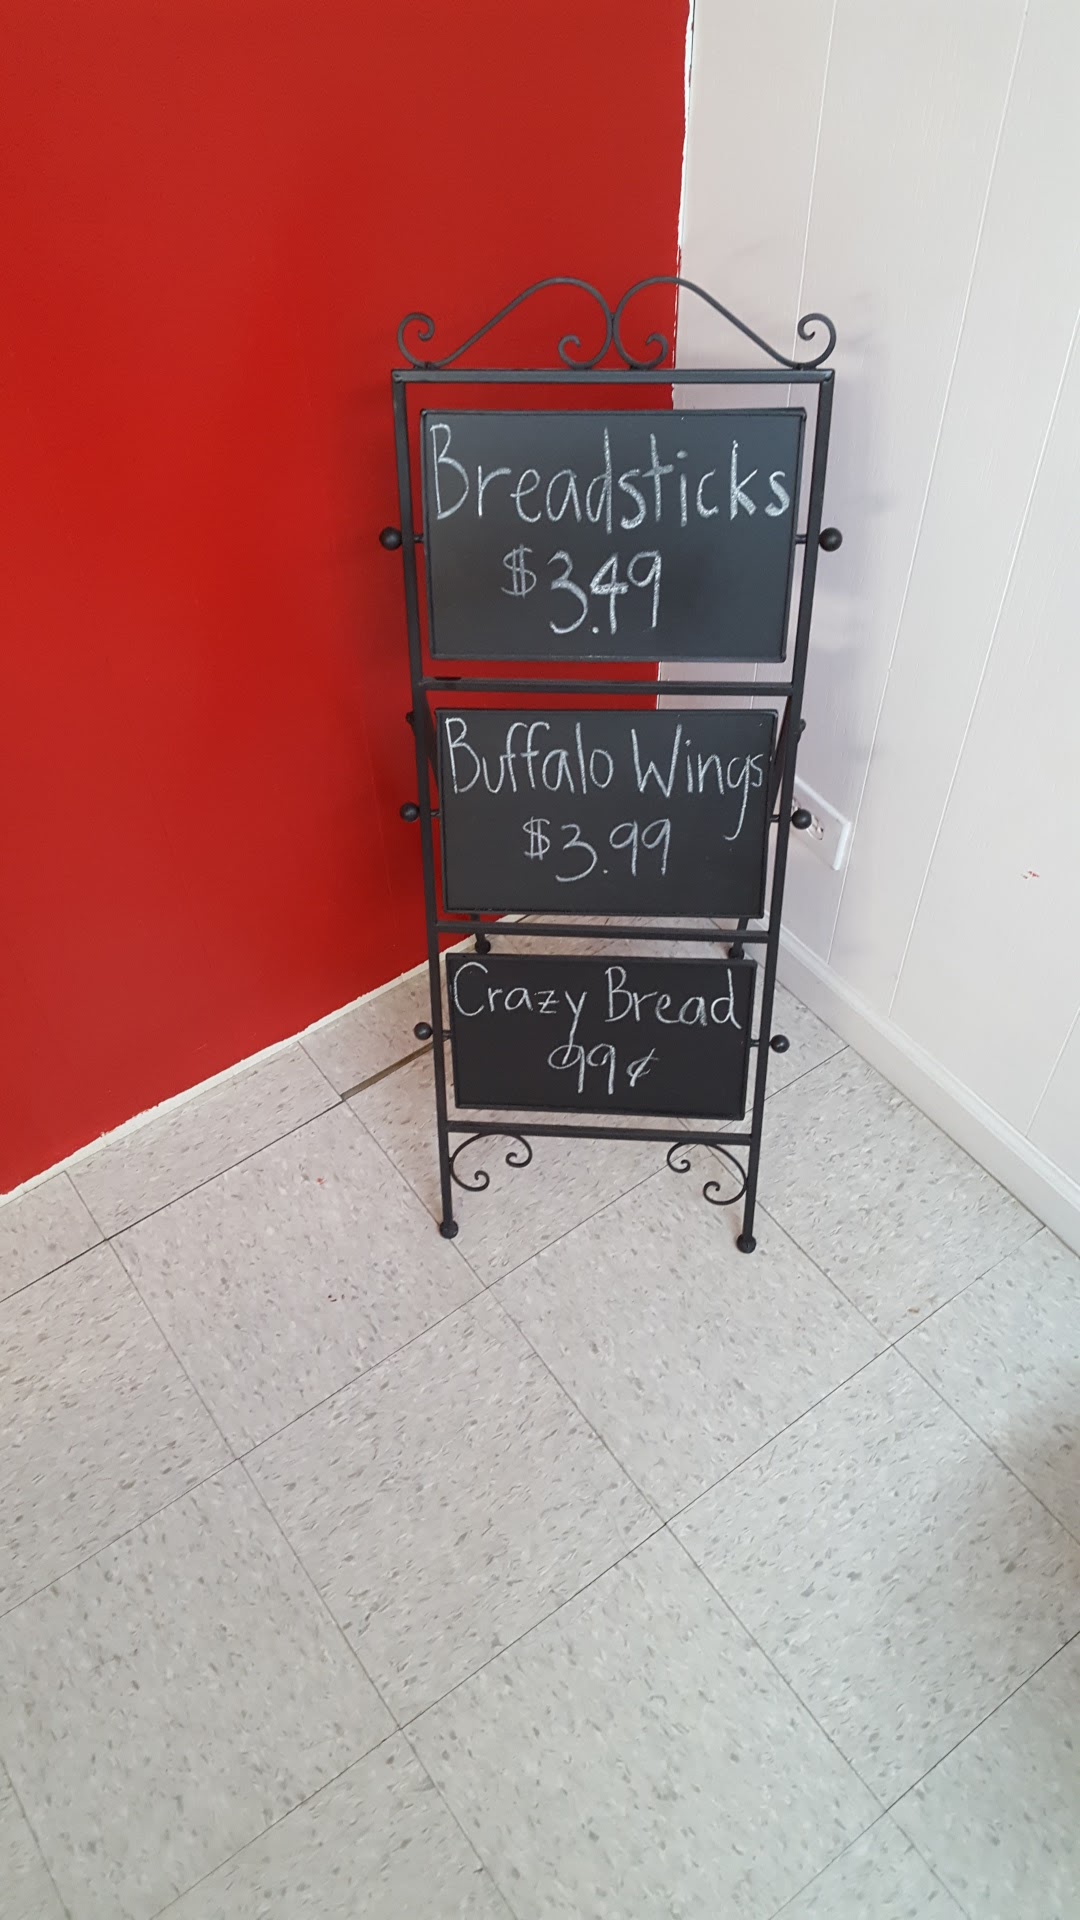 Breadsticks
$3.49
Buffalo Wings
$3.99
Crazy Bread
99¢